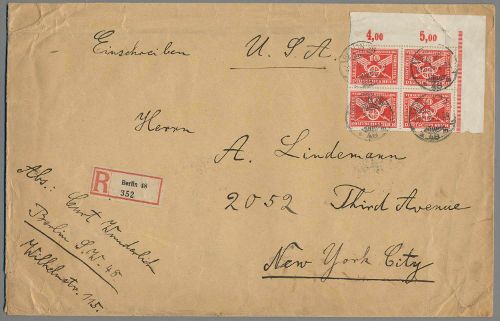 4,00 5,00
Einschreiben U.S.A.
10 10
10 10
Herrn
A. Lindemann
R Berlin 48
352
2052 Third Avenue
New York City
Abs: Curt Wunderlich
Berlin S.W. 48
Wilhelmstr. 115.